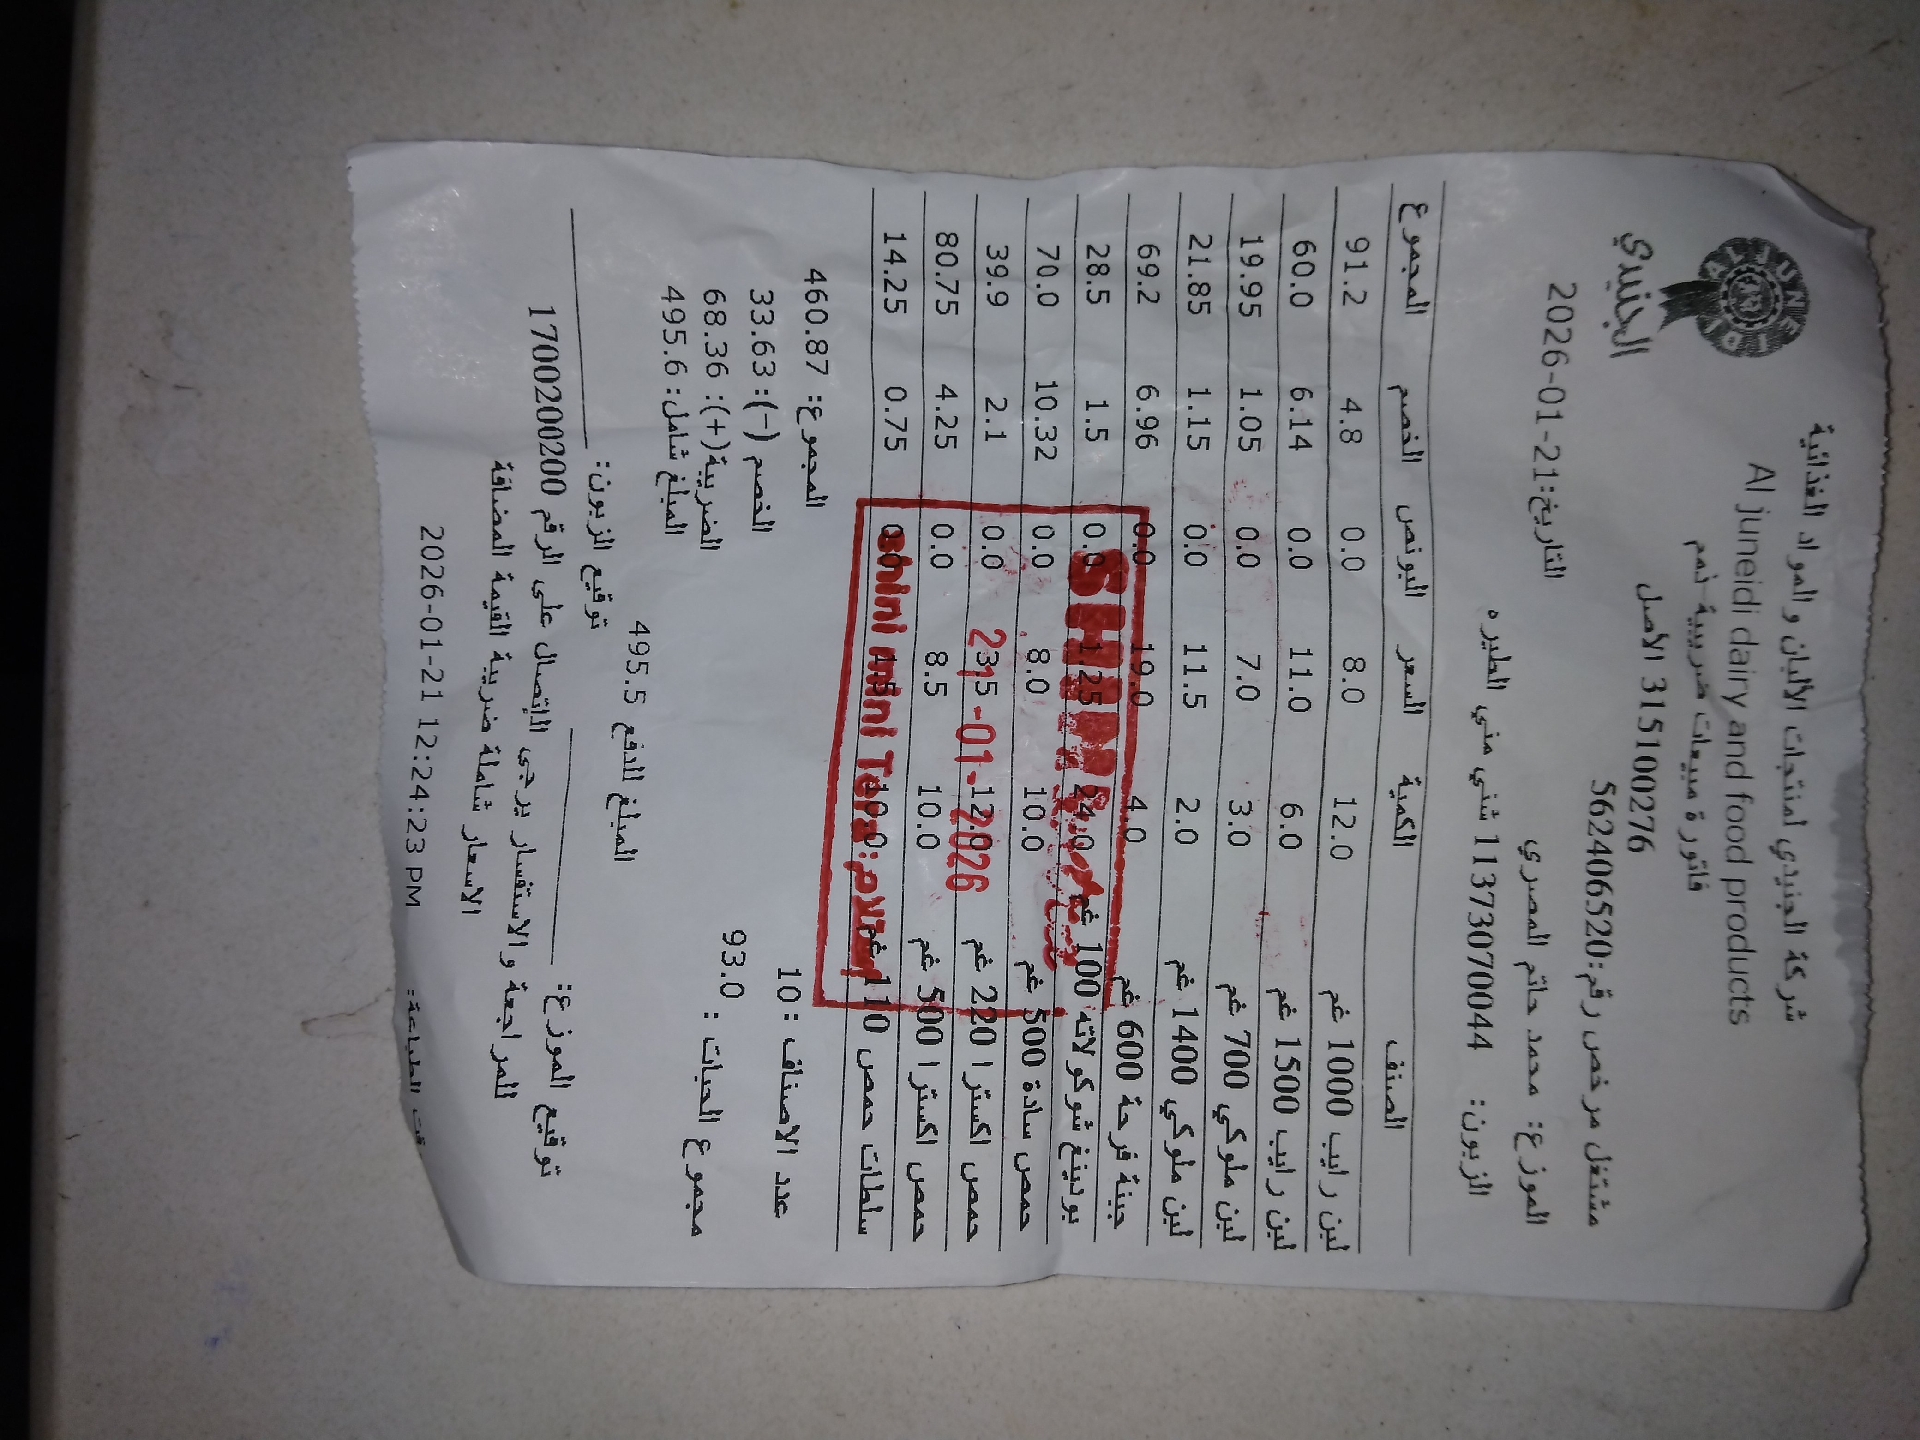 AL JUNEIDI
الجنيدي
شركة الجنيدي لمنتجات الألبان والمواد الغذائية
Al juneidi dairy and food products
فاتورة مبيعات ضريبية - ذمم
315100276 الاصل
مشتغل مرخص رقم:562406520
التاريخ:2026-01-21
الموزع: محمد حاتم المصري
الزبون: 11373070044 شني مني الطيره
الصنف الكمية السعر البونص الخصم المجموع
لبن رايب 1000 غم 12.0 8.0 0.0 4.8 91.2
لبن رايب 1500 غم 6.0 11.0 0.0 6.14 60.0
لبن ملوكي 700 غم 3.0 7.0 0.0 1.05 19.95
لبن ملوكي 1400 غم 2.0 11.5 0.0 1.15 21.85
جبنة فرحة 600 غم 4.0 19.0 0.0 6.96 69.2
بودينغ شوكولاتة 100 غم 24.0 1.25 0.0 1.5 28.5
حمص سادة 500 غم 10.0 8.0 0.0 10.32 70.0
حمص اكسترا 220 غم 12.0 3.5 0.0 2.1 39.9
حمص اكسترا 500 غم 10.0 8.5 0.0 4.25 80.75
سلطات حمص 110 غم 10.0 1.5 0.0 0.75 14.25
21-01-2026
shini mini
عدد الاصناف : 10
مجموع الحبات : 93.0
المجموع: 460.87
الخصم (-): 33.63
الضريبة(+): 68.36
المبلغ شامل: 495.6
المبلغ الدفع 495.5
توقيع الموزع: توقيع الزبون:
للمراجعة والاستفسار يرجى الاتصال على الرقم 1700200200
الاسعار شاملة ضريبة القيمة المضافة
الطباعة: 2026-01-21 12:24:23 PM